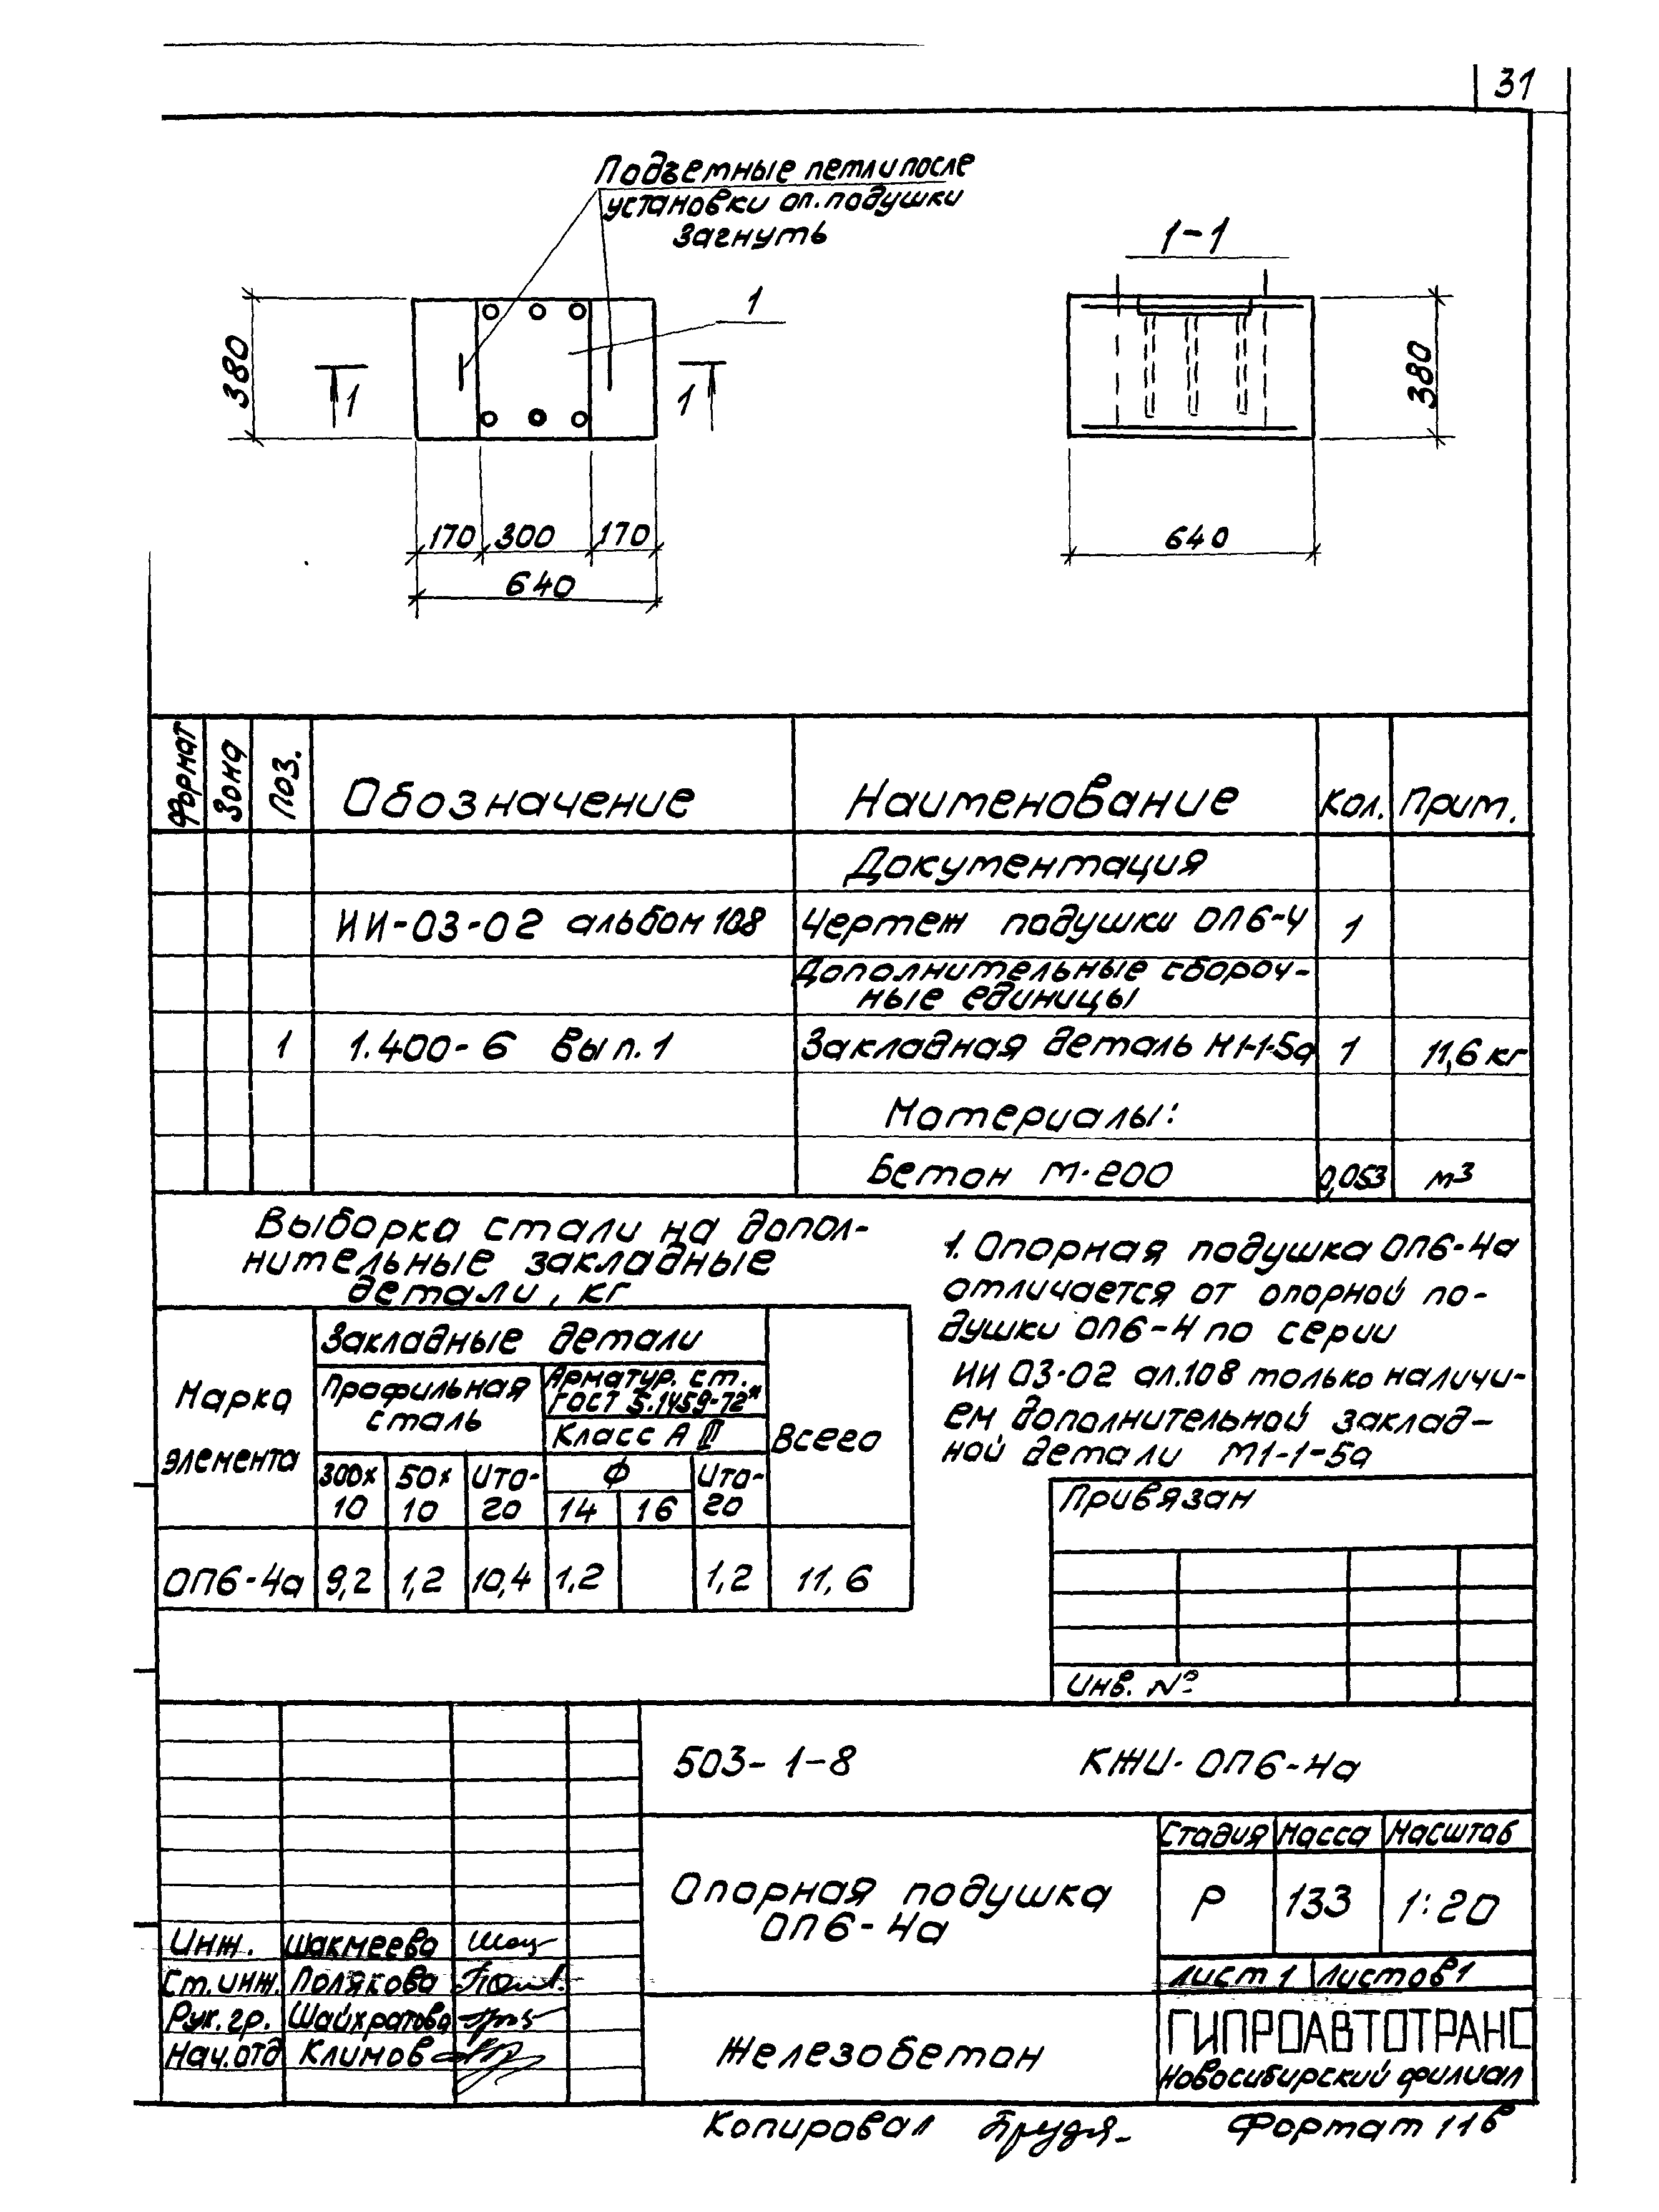 31
Подъемные петли после
установки оп. подушки
загнуть
1-1
1
380
1
1
380
170 300 170
640
640
Формат Зона Поз. Обозначение Наименование Кол. Прим.
Документация
ИИ-03-02 альбом 108 Чертеж подушки ОП6-4 1
Дополнительные сбороч-
ные единицы
1 1.400-6 вып.1 Закладная деталь М1-1-5а 1 11,6 кг
Материалы:
Бетон М-200 0,053 м³
Выборка стали на допол-
нительные закладные
детали, кг
Марка элемента
Закладные детали
Профильная сталь
Арматур. ст.
ГОСТ 5.1459-72*
Класс А III
Всего
300х10 50х10 Итого Ф 14 16 Итого
ОП6-4а 9,2 1,2 10,4 1,2 1,2 11,6
1. Опорная подушка ОП6-4а
отличается от опорной по-
душки ОП6-4 по серии
ИИ 03-02 ал.108 только наличи-
ем дополнительной заклад-
ной детали М1-1-5а
Привязан
Инв. №
503-1-8 КЖИ-ОП6-4а
Опорная подушка
ОП6-4а
Стадия Масса Масштаб
Р 133 1:20
Лист 1 Листов 1
Инж. Шакмеева
Ст. инж. Полякова
Рук. гр. Шайхратова
Нач. отд Климов
Железобетон
ГИПРОАВТОТРАНС
Новосибирский филиал
Копировал
Формат 11в